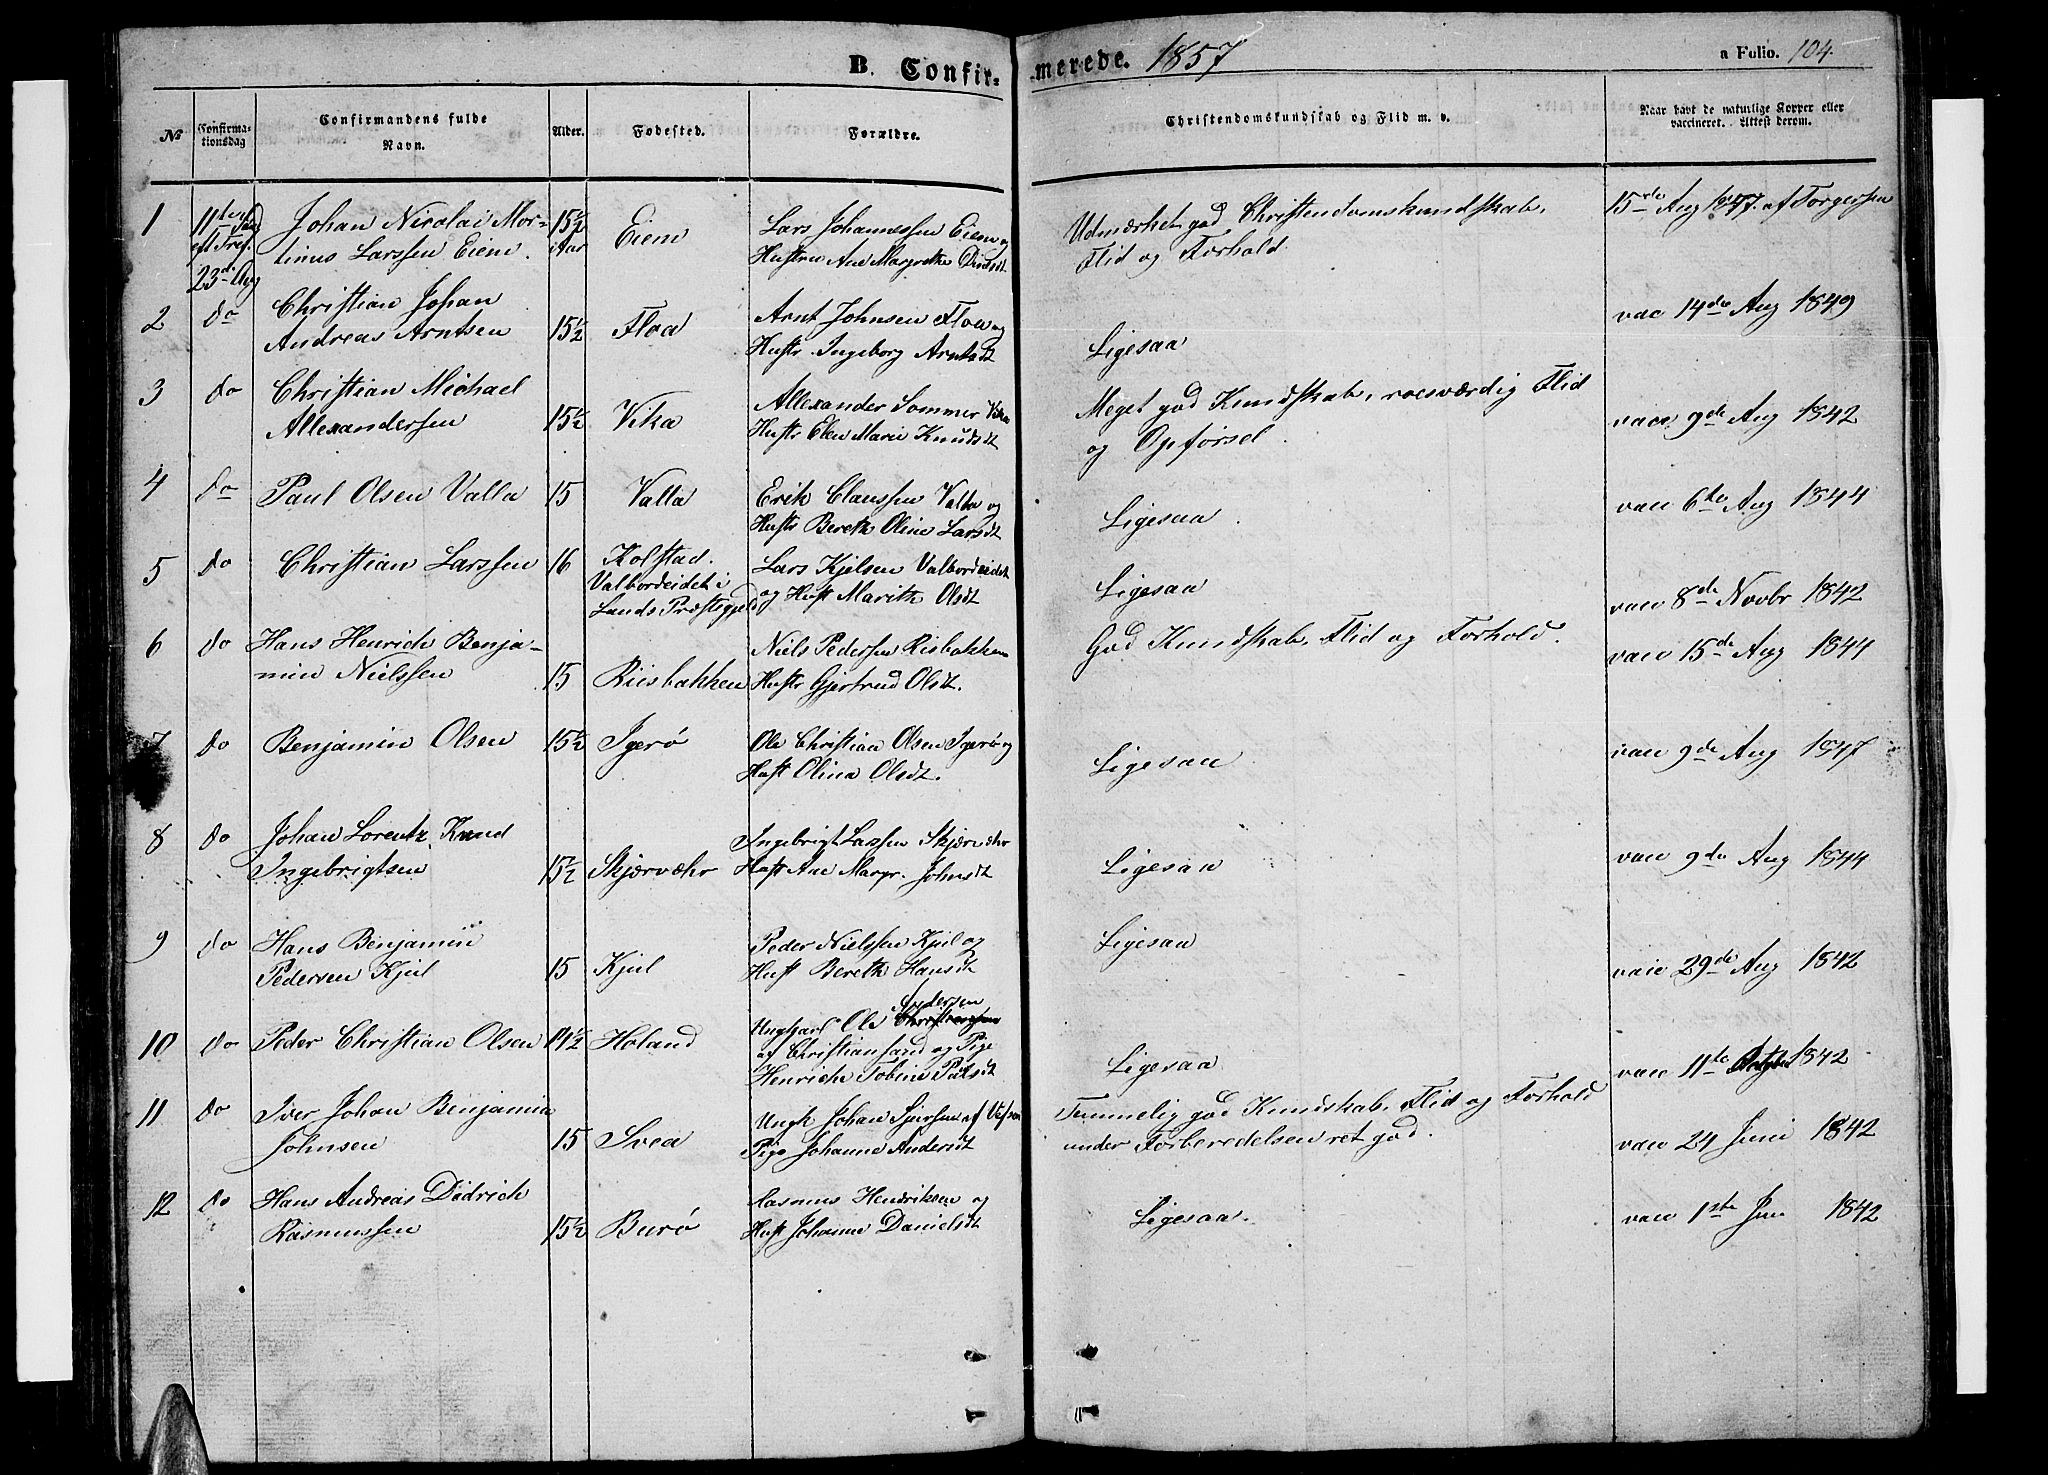 B. Confir- merede. 1857
a Folio. 104.
No Confirma-tionsdag Confirmandens fulde Navn. Alder. Fodested. Forældre. Christendomskundskab og Flid m. v. Naar havt de naturlige Kopper eller vaccineret. Attest derom.
1 11te Sønd eft Tref. 23de Aug
Johan Nicolai Mor-
tinus Larssen Eiem.
15½ Aar
Eiem
Lars Johannessen Eiem og
Hustru Ane Margrethe
Udmærket god Christendomskundskab,
Flid og Forhold.
15de Aug 1847. af Torgersen
2 do
Christian Johan
Andreas Arntsen
15½
Floa
Arnt Johnsen Floa og
Hustr. Ingeborg Arntsdt
Ligesaa
vac 14de Aug 1849
3 do
Christian Michael
Allexandersen
15½
Vika
Allexander Sommer Vika
Hustr Elen Marie Knudsdt
Meget god Kundskab, roesværdig Flid
og Opførsel.
vacc 9de Aug 1842
4 do
Paul Olsen Valla
15
Valla
Erik Claussen Valla og
Hustr Bereth Oline Larsdt
Ligesaa.
vac 6te Aug 1844
5 do
Christian Larssen
16
Kolstad.
Valbordeidet i
Lunds Præstegjeld
Lars Kjelsen Valbordeidet
og Hust Marith Olsdt
Ligesaa
vac 8de Novbr 1842
6 do
Hans Henrich Benja-
min Nielssen
15
Riisbakken
Niels Pedersen Risbakken
Hustr Gjertrud Olsdt.
God Kundskab, Flid og Forhold.
vac 15de Aug 1844
7 do
Benjamin Olsen
15½
Igerø
Ole Christian Olsen Igerø og
Hust Olina Olsdt.
Ligesaa
vac 9de Aug 1847
8 do
Johan Lorentz Knud
Ingebrigtsen
15½
Skjærvæhr
Ingebrigt Lassen Skjærvæhr
Hust Ane Margr. Johnsdt
Ligesaa
vac 9de Aug 1844
9 do
Hans Benjamin
Pedersen Kjul
15
Kjul
Peder Nielssen Kjul og
Hust Bereth Hansdt
Ligesaa
vac 29de Aug 1842
10 do
Peder Christian Olsen
14½
Holand
Andersen
Ungkarl Ole
af Christiansand og Pige
Henriche Tobine Pålsdt
Ligesaa
vac 11te 1842
11 do
Iver Johan Benjamin
Johnsen
15
Svea
Ungk Johan af Vefsen
Pige Johanne Andersdt
Temmelig god Kundskab, Flid og Forhold
under Forberedelsen ret god.
vac 24 Juni 1842
12 do
Hans Andreas Didrich
Rasmussen
15½
Burø
Rasmus Hendriksen og
Hust Johanne Danielsdt
Ligesaa.
vac 1ste Jun 1842